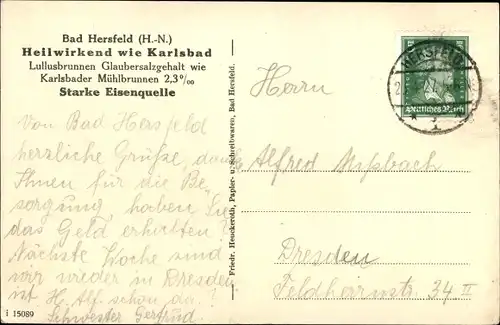 Bad Hersfeld (H.-N.)
Heilwirkend wie Karlsbad
Lullusbrunnen Glaubersalzgehalt wie
Karlsbader Mühlbrunnen 2,3‰
Starke Eisenquelle
Von Bad Hersfeld
herzliche Grüße, danke
Ihnen für die Be
sorgung haben Sie
das Geld erhalten?
Nächste Woche sind
wir wieder in Dresden
ist H. Alf. schon da?
Schwester Gertrud.
i 15089
Friedr. Heuckeroth, Papier- u. Schreibwaren, Bad Hersfeld.
HERSFELD
Deutsches Reich
Herrn
Alfred
Dresden
Feldherrnstr. 34 II